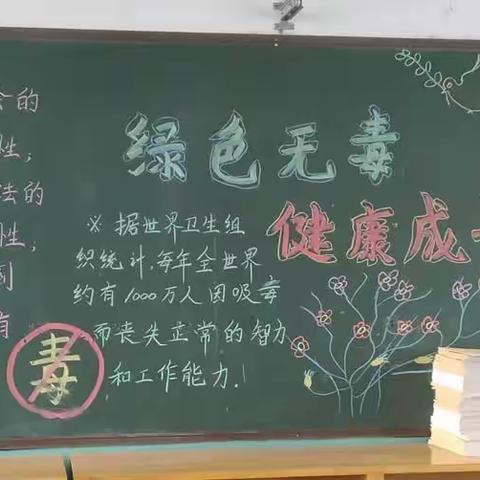 会的
性，
法的
性，
国
有
绿色无毒
健康成
※据世界卫生组
织统计，每年全世界
约有1000万人因吸毒
而丧失正常的智力
和工作能力！
毒